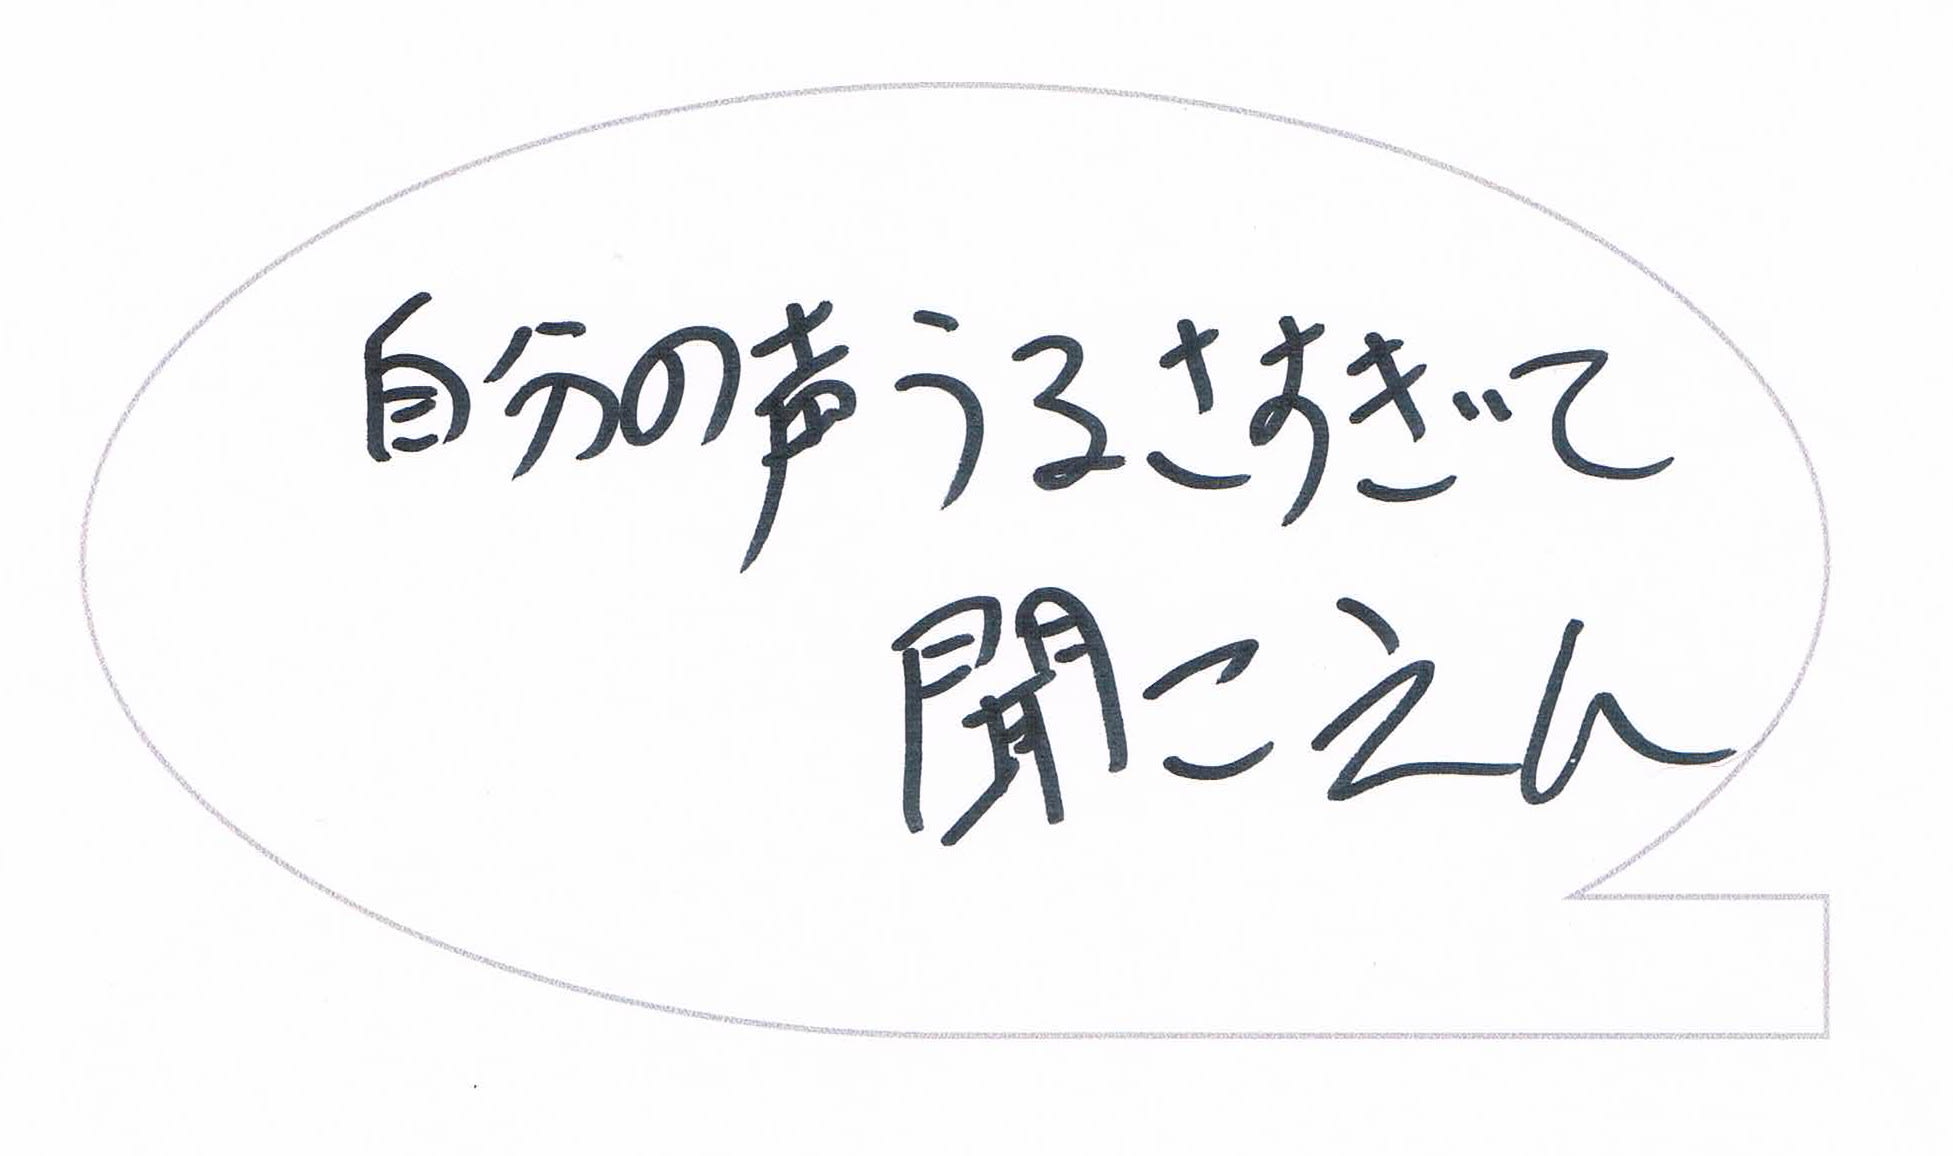 自分の声うるさすぎて
聞こえん